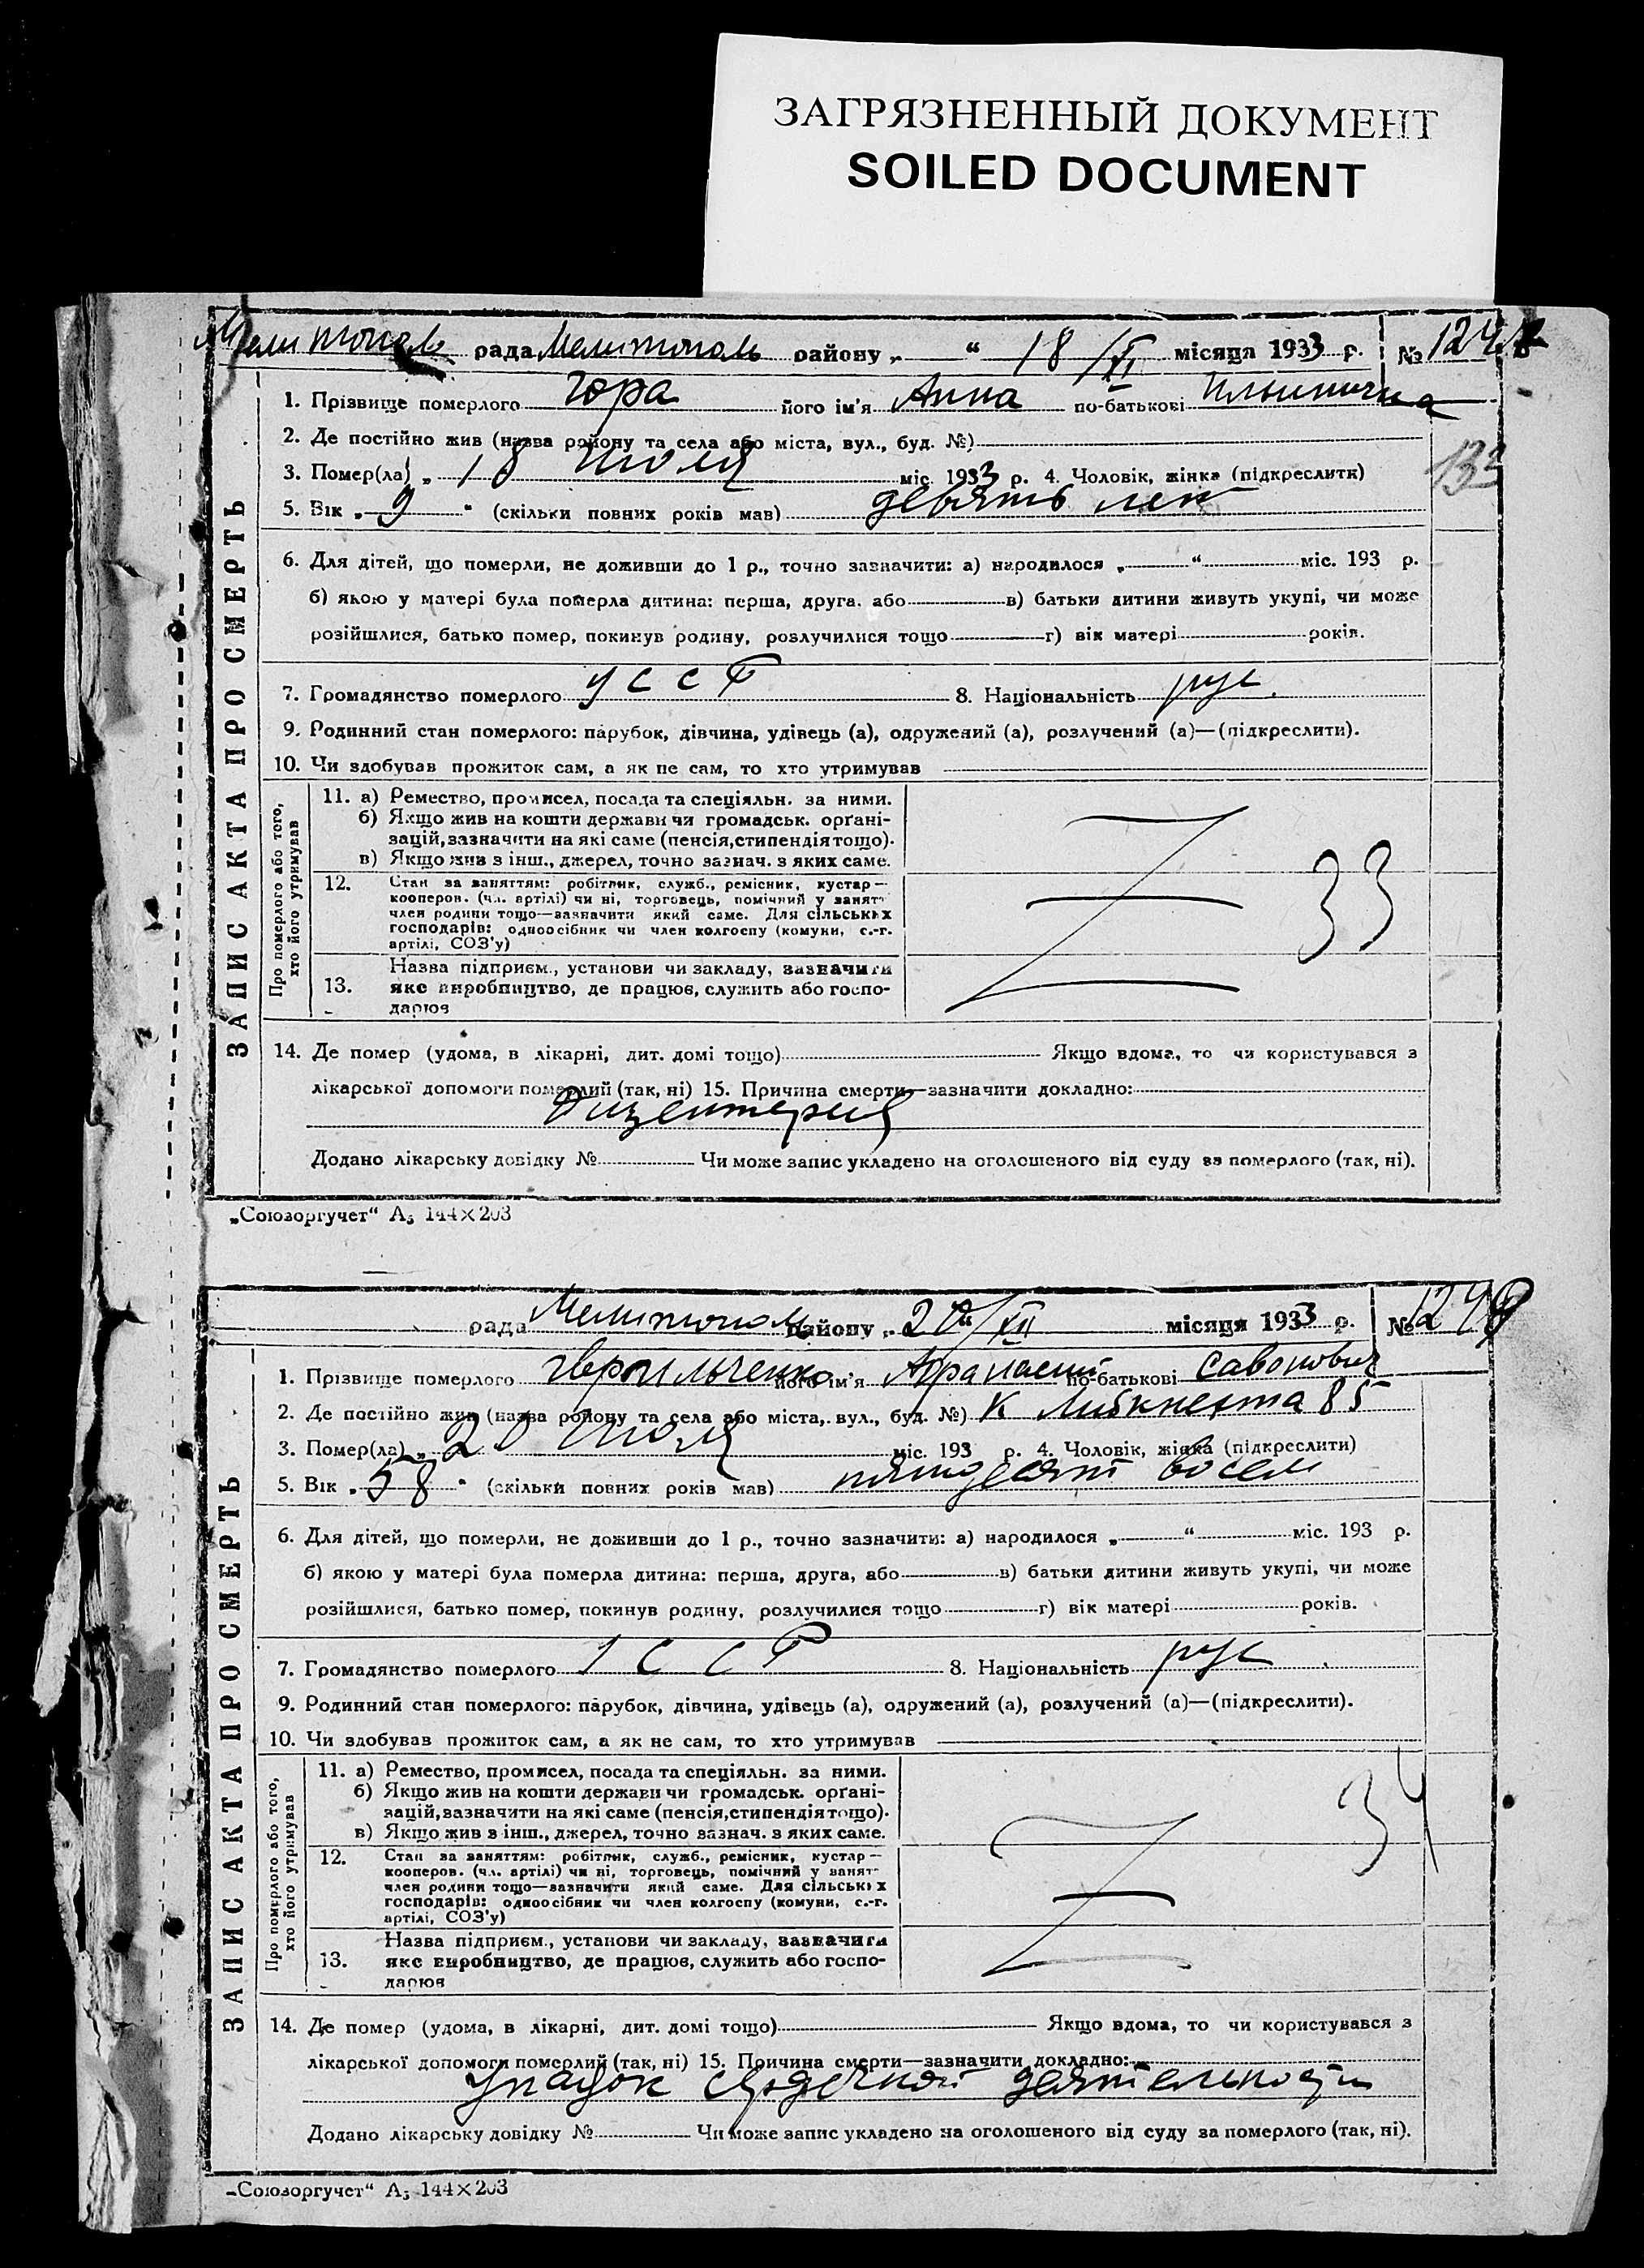 ЗАГРЯЗНЕННЫЙ ДОКУМЕНТ
SOILED DOCUMENT
Мелитополь рада Мелитополь району „ “ 18/XI місяця 1933 р. № 124
1. Прізвище померлого Гора його ім'я Анна по-батькові Ильинична
2. Де постійно жив (назва району та села або міста, вул., буд. №)
133
3. Помер(ла) „ 18 июля міс. 1933 р. 4. Чоловік, жінка (підкреслити)
5. Вік „ 9 “ (скільки повних років мав) девять лет
6. Для дітей, що померли, не доживши до 1 р., точно зазначити: а) народилося „ “ міс. 193 р.
б) якою у матері була померла дитина: перша, друга, або в) батьки дитини живуть укупі, чи може
розійшлися, батько помер, покинув родину, розлучилися тощо г) вік матері років.
7. Громадянство померлого УССР 8. Національність рус.
9. Родинний стан померлого: парубок, дівчина, удівець (а), одружений (а), розлучений (а)—(підкреслити).
10. Чи здобував прожиток сам, а як не сам, то хто утримував
ЗАПИС АКТА ПРО СМЕРТЬ
Про померлого або того, хто його утримував
11. а) Ремество, промисел, посада та спеціяльн. за ними.
б) Якщо жив на кошти держави чи громадськ. орґані-
зацій, зазначити на які саме (пенсія, стипендія тощо).
в) Якщо жив з інш., джерел, точно зазнач. з яких саме.
12. Стан за заняттям: робітник, служб., ремісник, кустар—
кооперов. (чл. артілі) чи ні, торговець, помічний у занят
член родини тощо—зазначити який саме. Для сільських
господарів: одноосібник чи член колгоспу (комуни, с.-г.
артілі, СОЗ'у)
33
13. Назва підприєм., установи чи закладу, зазначити
яке виробництво, де працює, служить або госпо-
дарює
14. Де помер (удома, в лікарні, дит. домі тощо) Якщо вдома, то чи користувався з
лікарської допомоги померлий (так, ні) 15. Причина смерти—зазначити докладно:
дизентерия
Додано лікарську довідку № Чи може запис укладено на оголошеного від суду за померлого (так, ні).
„Союзоргучет“ А₅ 144×203
рада Мелитополь району „ 20/XII місяця 1933 р. № 124
1. Прізвище померлого його ім'я Афанасий по-батькові Савонович
2. Де постійно жив (назва району та села або міста, вул., буд. №) К Либкнехта 85
3. Помер(ла) „ 20 июля міс. 193 р. 4. Чоловік, жінка (підкреслити)
5. Вік „ 58 “ (скільки повних років мав) пятьдесят восем
6. Для дітей, що померли, не доживши до 1 р., точно зазначити: а) народилося „ “ міс. 193 р.
б) якою у матері була померла дитина: перша, друга, або в) батьки дитини живуть укупі, чи може
розійшлися, батько помер, покинув родину, розлучилися тощо г) вік матері років.
7. Громадянство померлого УССР 8. Національність рус
9. Родинний стан померлого: парубок, дівчина, удівець (а), одружений (а), розлучений (а)—(підкреслити).
10. Чи здобував прожиток сам, а як не сам, то хто утримував
ЗАПИС АКТА ПРО СМЕРТЬ
Про померлого або того, хто його утримував
11. а) Ремество, промисел, посада та спеціяльн. за ними.
б) Якщо жив на кошти держави чи громадськ. орґані-
зацій, зазначити на які саме (пенсія, стипендія тощо).
в) Якщо жив з інш., джерел, точно зазнач. з яких саме.
34
12. Стан за заняттям: робітник, служб., ремісник, кустар—
кооперов. (чл. артілі) чи ні, торговець, помічний у занят
член родини тощо—зазначити який саме. Для сільських
господарів: одноосібник чи член колгоспу (комуни, с.-г.
артілі, СОЗ'у)
13. Назва підприєм., установи чи закладу, зазначити
яке виробництво, де працює, служить або госпо-
дарює
14. Де помер (удома, в лікарні, дит. домі тощо) Якщо вдома, то чи користувався з
лікарської допомоги померлий (так, ні) 15. Причина смерти—зазначити докладно:
упадок сердечной деятельности
Додано лікарську довідку № Чи може запис укладено на оголошеного від суду за померлого (так, ні).
„Союзоргучет“ А₅ 144×203